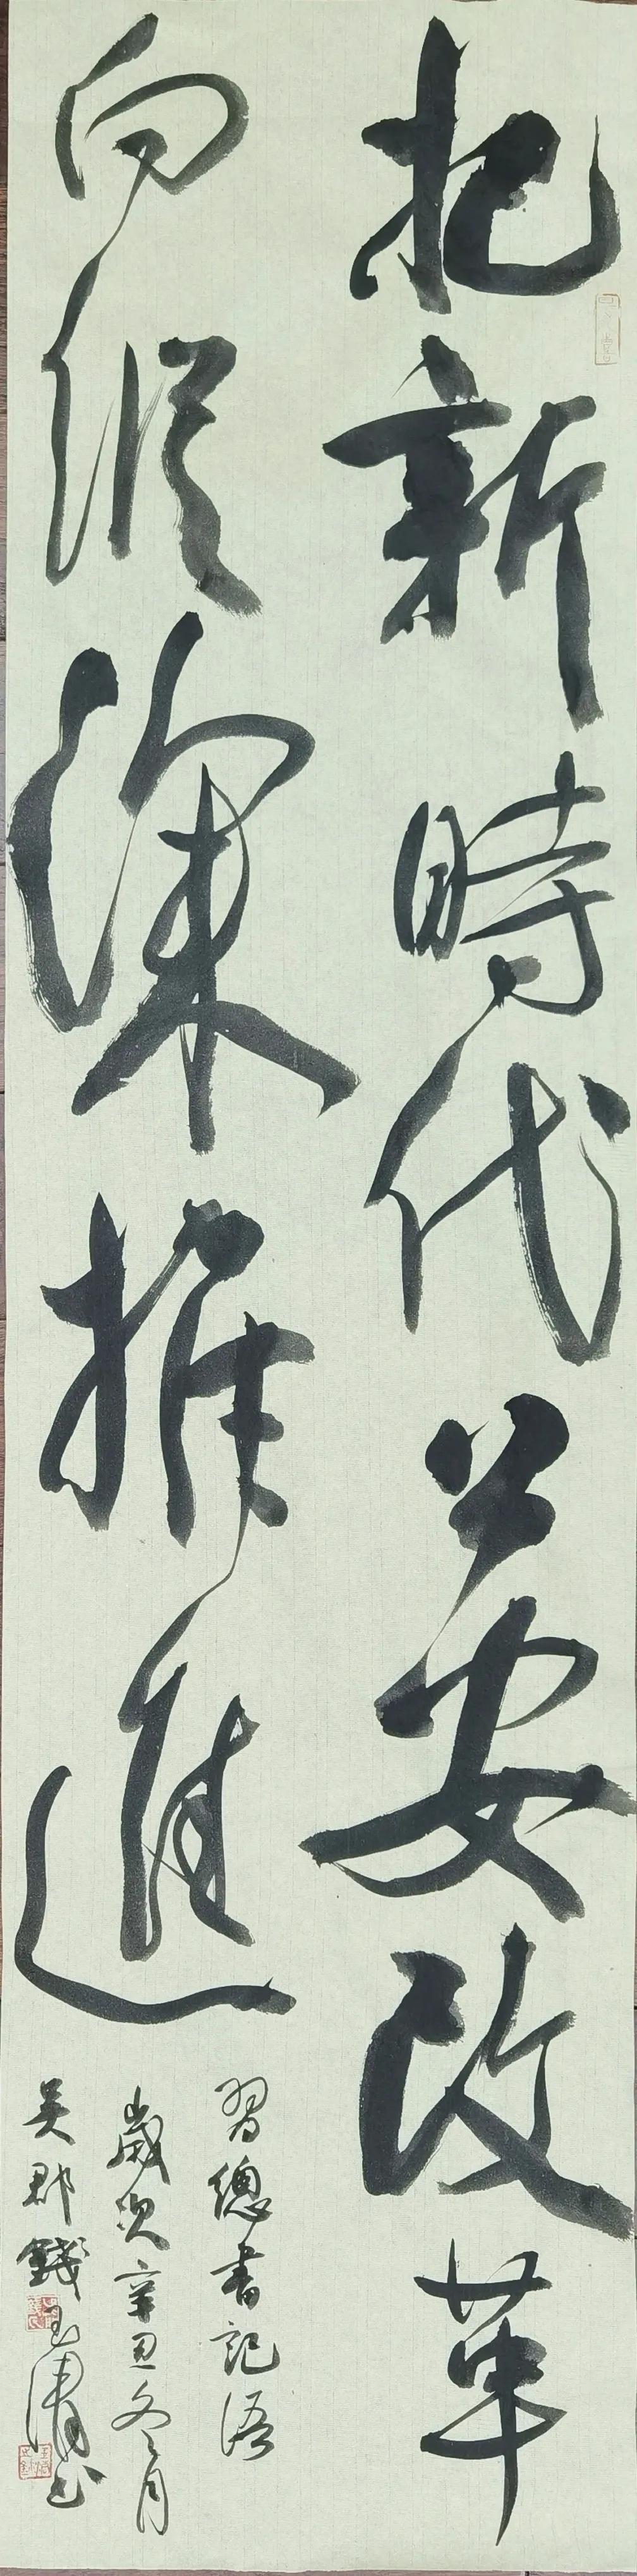 把新時代公安改革
向縱深推進
習總書記語
歲次辛丑冬月
吴郡錢玉清書